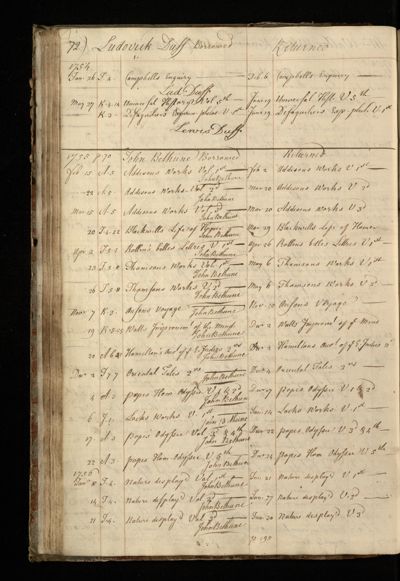 72) Ludovick Duff Borrowed Returned
1754
Jan 26 F.2. Campbells Enquiry Feb 6 Campbells Enquiry
Lud Duff
May 27 K.2.12 Universal History Vol 5th June 19 Universal Hist. V 5th
K.2. June 19
Lewis Duff
1755 p 70 John Bethune Borrowed Returned
Feb 15 A.3 Addisons Works Vol 1st Feb 2 Addisons Works V 1st
John Bethune
22 A.3 Addisons Works Vol 2d Mar 20 Addisons Works V 2d
John Bethune
Mar 15 A.3 Addisons Works Vol 3d Mar 20 Addisons Works V 3d
John Bethune
20 F.4.22 Blackwells Life of Homer Mar 29 Blackwells Life of Homer
John Bethune
Apr 2 F.5.1 Rollins belles Lettres V 1st Apr 26 Rollins belles Lettres V 1st
John Bethune
23 F.5.8 Thomsons Works Vol 1st May 6 Thomsons Works V 1st
John Bethune
26 F.5.8 Thomsons Works V 2d May 8 Thomsons Works V 2d
John Bethune
Nov 7 K.2 Ansons Voyage Nov 20 Ansons Voyage
John Bethune
19 K.2.25 Watts Improvemt of the Mind Dec 2 Watts Improvmt of ye Mind
John Bethune
20 Hamiltons Dec 2 Hamiltons
John Bethune
Dec 2 F.7.7 Oriental Tales 2 vos Dec 4 Oriental Tales 2 vos
John Bethune
4 A.3 popes Hom Odysse V 1 & 2d Dec 17 popes Odysse V 1 & 2d
John Bethune
6 F.1. Locks Works V. 1st Jan 14 Locks Works V. 1st
John Bethune
17 A.3 Popes Odysse Vol 3d & 4th Dec 22 popes Odysse V 3d & 4th
John Bethune
22 A.3 popes Hom Odysse V 5th Dec 24 popes Hom Odysse V 5th
John Bethune
1756
Jan 8 F.4. Nature display'd Vol 1st Jan 21 Nature display'd V. 1st
John Bethune
14 F.4. Nature display'd Vol 2d Jan 27 Nature display'd V. 2d
John Bethune
21 F.4. Nature display'd Vol 3d Jan 30 Nature display'd V. 3d
John Bethune
p 190